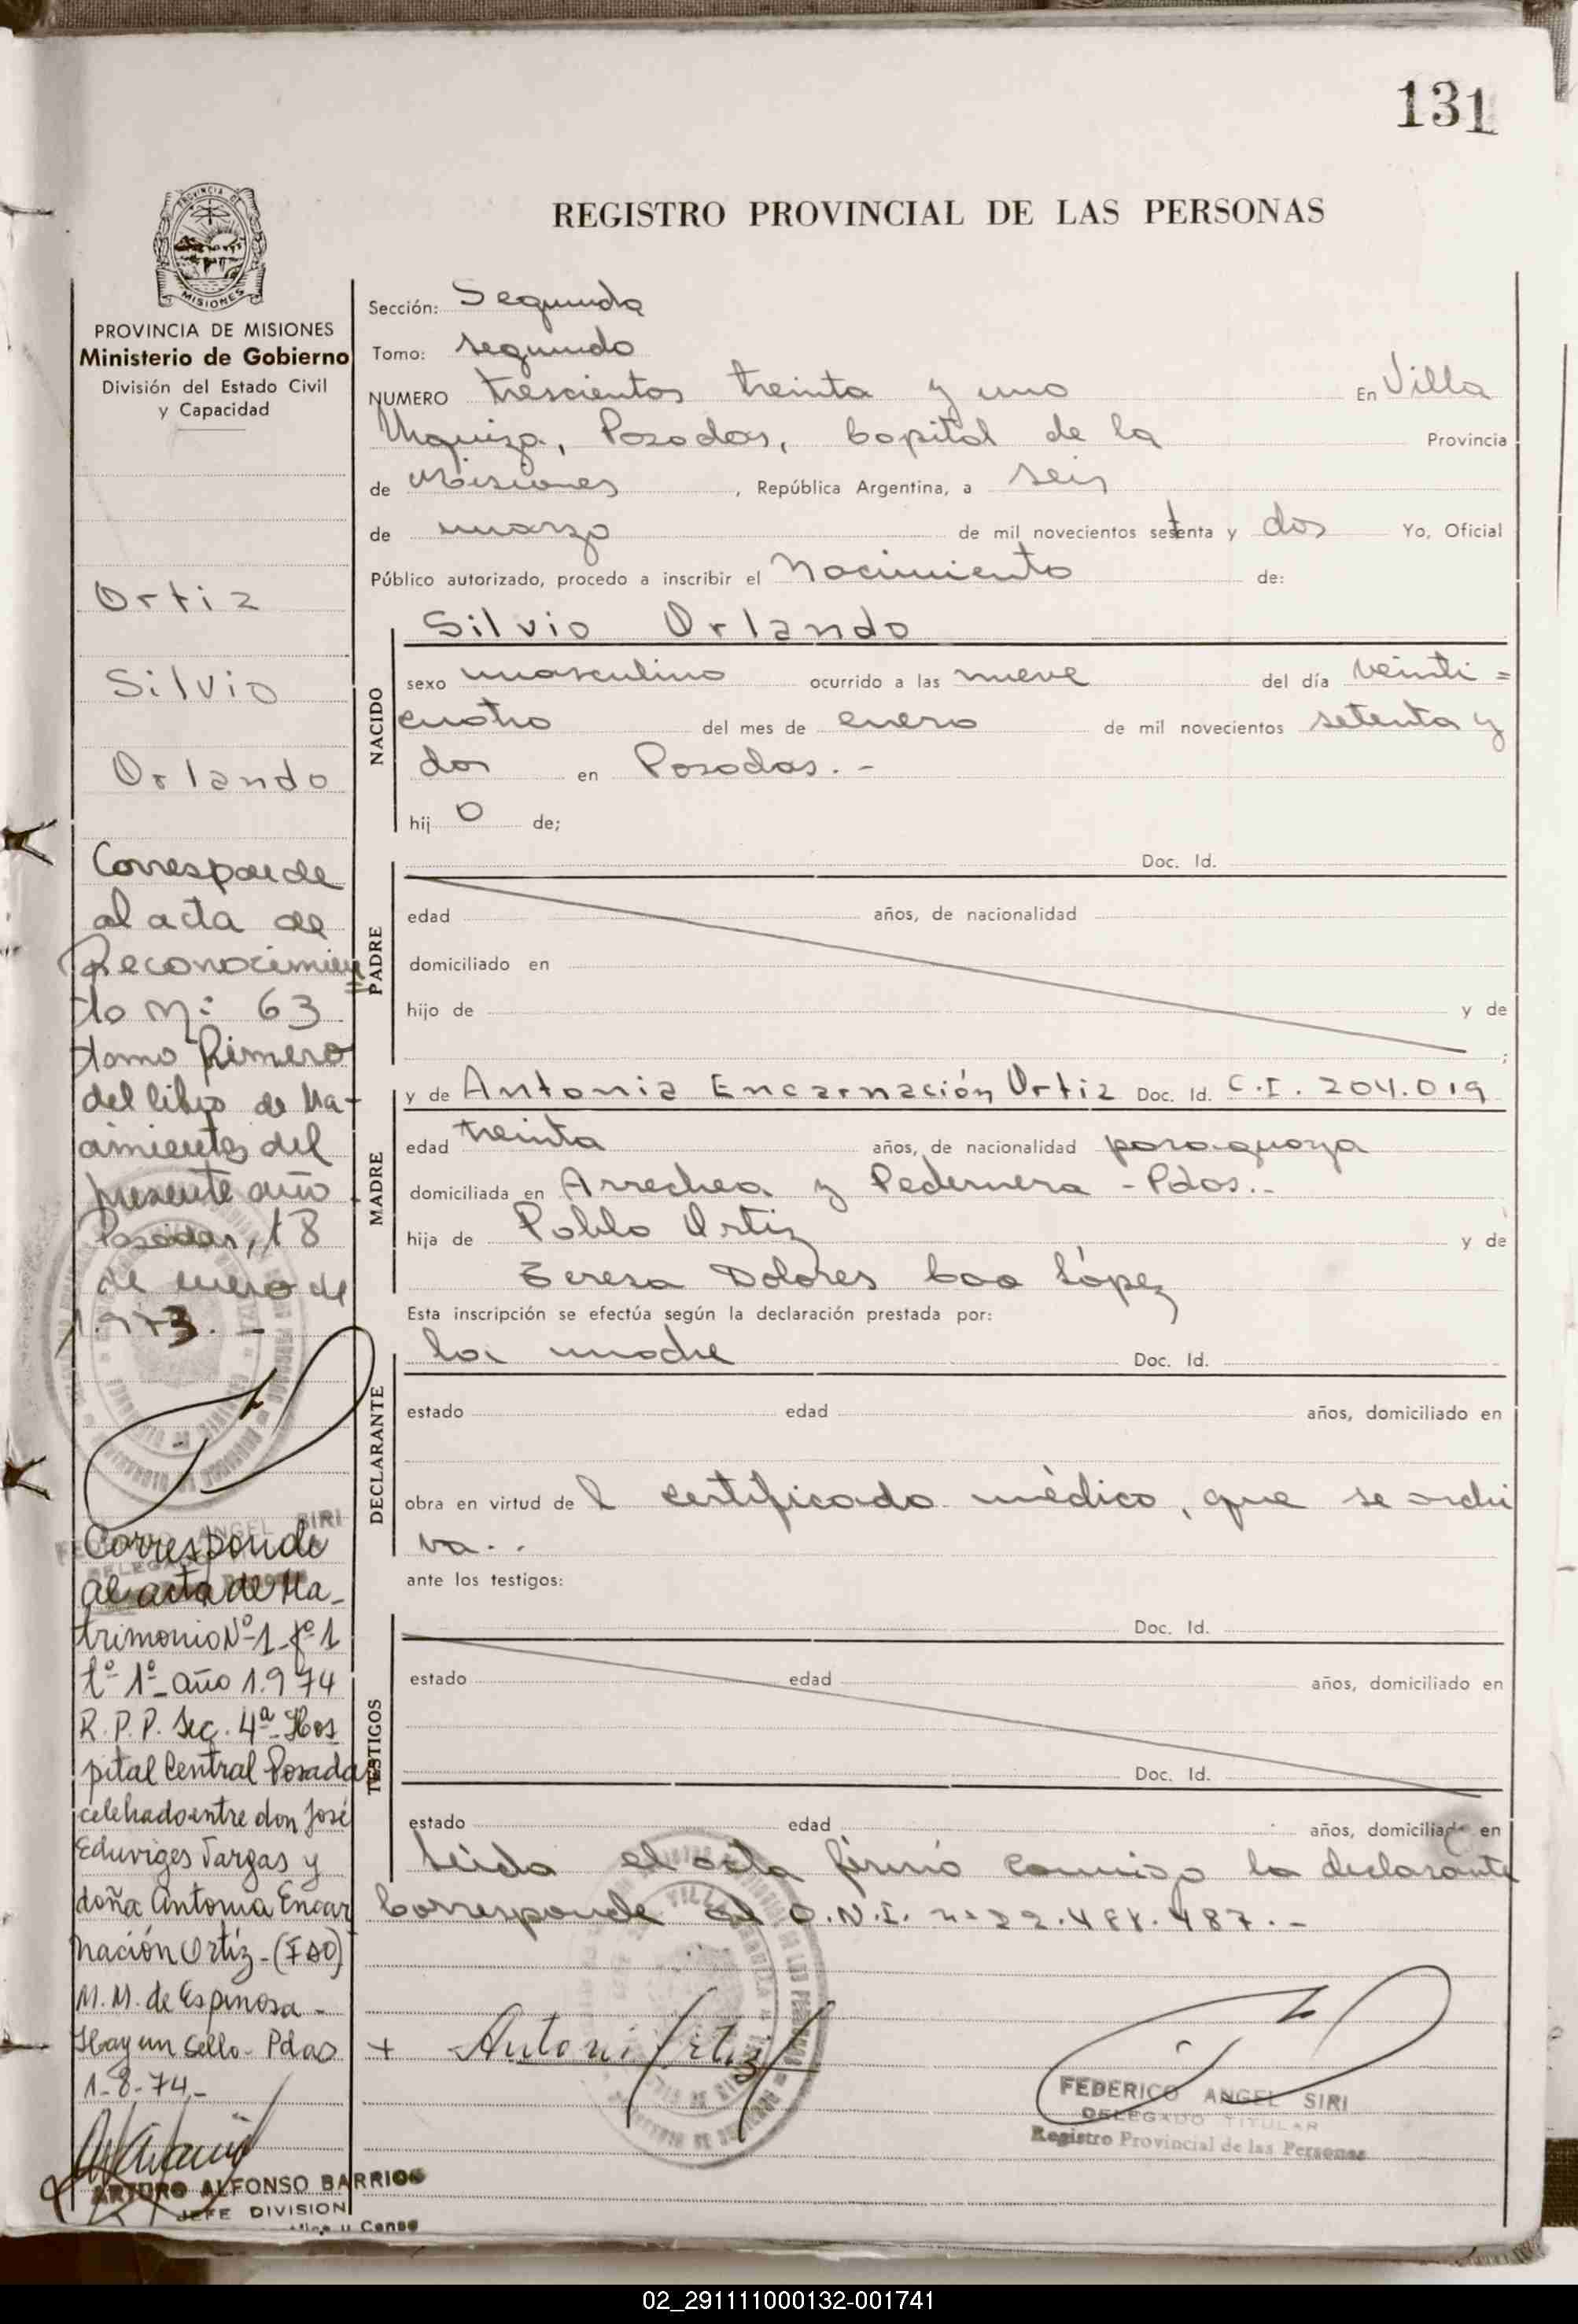 131
REGISTRO PROVINCIAL DE LAS PERSONAS
PROVINCIA DE MISIONES
MISIONES
PROVINCIA DE MISIONES
Ministerio de Gobierno
División del Estado Civil
y Capacidad
Ortiz
Silvio
Orlando
Corresponde
al acta de
Reconocimien
to Nº: 63
tomo Primero
del libro de Na-
cimientos del
presente año
Posadas, 18
de enero de
1.973. -
FEDERICO ANGEL SIRI
DELEGADO
Corresponde
al acta de Ma-
trimonio Nº-1-fº-1
tº 1º- año 1.974
R.P.P. Sec. 4ª- Hos
pital Central Posadas
celebrado entre don José
Eduviges Vargas y
doña Antonia Encar
nación Ortíz-(FDO)
M.M. de Espinosa-
Hay un Sello- Pdas
1-8-74-
ARTURO ALFONSO BARRIOS
JEFE DIVISION
y Censo
Sección: Segunda
Tomo: segundo
NUMERO trescientos treinta y uno En Villa
Urquiza, Posadas, Capital de la Provincia
de Misiones, República Argentina, a seis
de marzo de mil novecientos setenta y dos Yo, Oficial
Público autorizado, procedo a inscribir el Nacimiento de:
NACIDO
Silvio Orlando
sexo masculino ocurrido a las nueve del día veinti=
cuatro del mes de enero de mil novecientos setenta y
dos en Posadas.-
hij o de;
PADRE
Doc. Id.
edad años, de nacionalidad
domiciliado en
hijo de y de
;
MADRE
y de Antonia Encarnación Ortiz Doc. Id. C.I. 204.019
edad treinta años, de nacionalidad paraguaya
domiciliada en Arrechea y Pedernera - Pdas..
hija de Pablo Ortiz y de
Teresa Dolores Cao López
Esta inscripción se efectúa según la declaración prestada por:
DECLARANTE
la madre Doc. Id.
estado edad años, domiciliado en
obra en virtud de l certificado médico, que se archi
va..
ante los testigos:
TESTIGOS
Doc. Id.
estado edad años, domiciliado en
Doc. Id.
estado edad años, domiciliado en
Leída el acta firmó conmigo la declarante
Corresponde al O.N.I. nº 22.488.487.-
+ Antonia Ortiz
FEDERICO ANGEL SIRI
DELEGADO TITULAR
Registro Provincial de las Personas
02_291111000132-001741